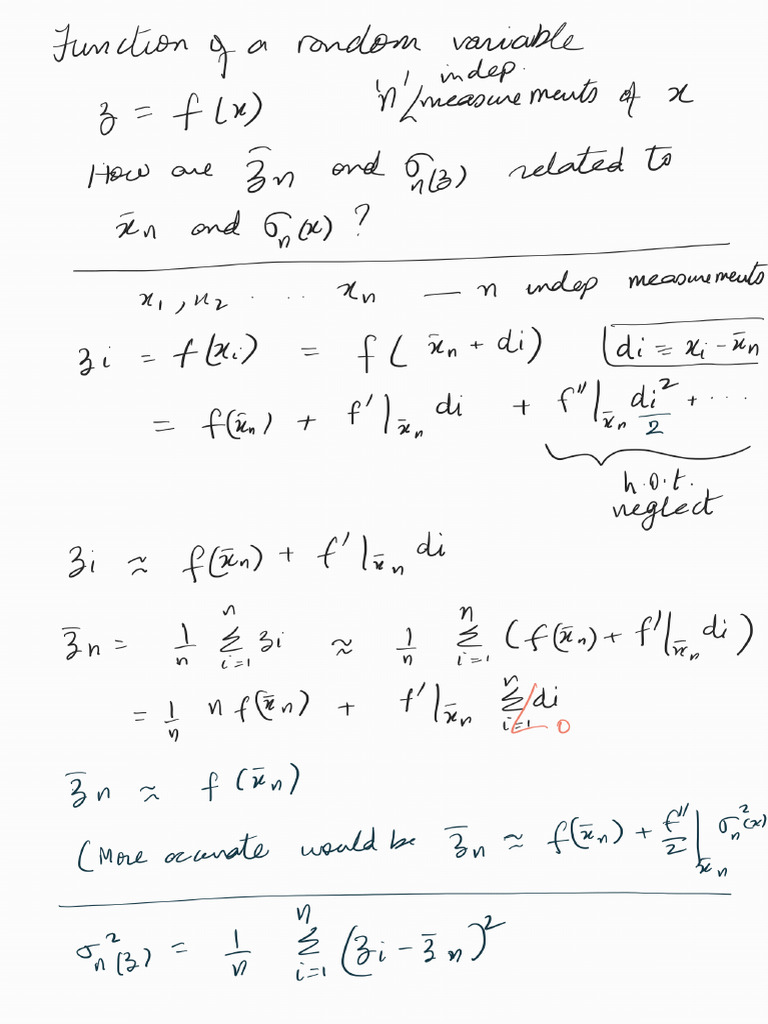 Function of a random variable
z = f(x) 'n' indep. measurements of x
How are z̄n and σn(z) related to
x̄n and σn(x) ?
x1, x2 . . . . xn — n indep measurements
zi = f(xi) = f( x̄n + di) (di = xi - x̄n
= f(x̄n) + f'|x̄n di + f''|x̄n di²/2 + . . .
h.o.t.
neglect
zi ≈ f(x̄n) + f'|x̄n di
z̄n = 1/n Σ_{i=1}^{n} zi ≈ 1/n Σ_{i=1}^{n} (f(x̄n) + f'|x̄n di)
= 1/n n f(x̄n) + f'|x̄n Σ_{i=1}^{n} di 0
z̄n ≈ f(x̄n)
(More accurate would be z̄n ≈ f(x̄n) + f''/2|x̄n σn²(x)
σn²(z) = 1/n Σ_{i=1}^{n} (zi - z̄n)²